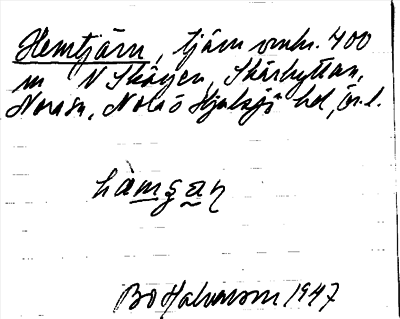 Hemtjärn, tjärn omkr. 400
m N Skägen, Skärhyttan,
Nora sn, Nora o Hjulsjö hd, ör. l.
Bo Halvarson 1947